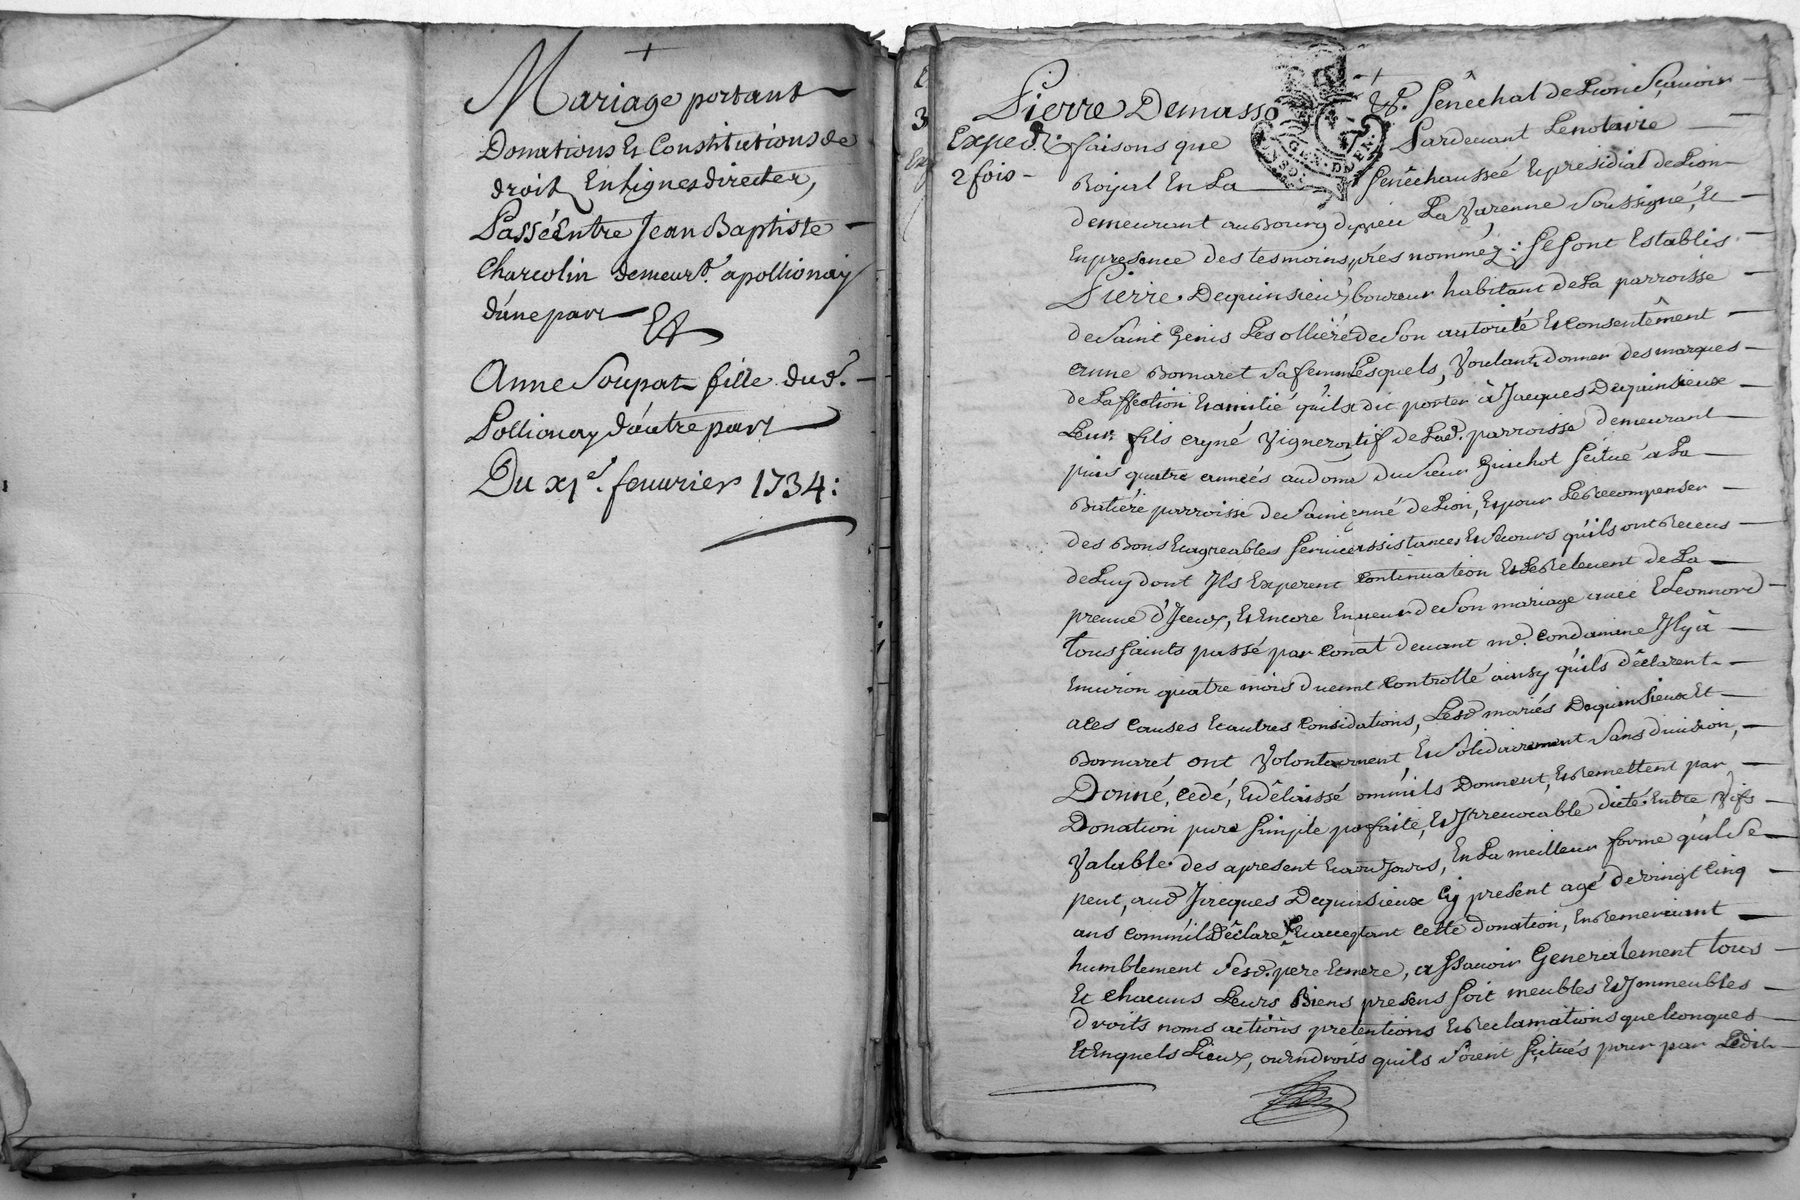 Mariage portant
Donations Et Constitutions de
droit En Lignes directes,
Passé Entre Jean Baptiste
Charcolin demeurt. a pollionay
d'une part Et
Anne Soupat fille dud.
Pollionay d'autre part
Du xie. feuurier 1734:
Pierre Demasso &. Senêchal de Lion Sçauoir
Exped. 2 fois
faisons que Pardeuant Le notaire
Roijal En La Senêchaussée Et presidial de Lion
demeurant au Bourg La Varenne Soussigné, Et
En presence des tesmoins, prés nommés: se sont Establis
Pierre Dequinsieux habitant de La parroisse
de Saint Genis Les ollière de Son autorité Et consentêment
anne Bornaret Sa femme Lesquels, Voulants donner des marques
de Laffection Et amitié qu'ils dit porter à Jacques Dequinsieux
Leur fils ayné Vigneron de Lad. parroisse demeurant
puis quatre années au dome du Sieur Guichot scitué a La
Batiére parroisse de Saint de Lion, Et pour Le Recompenser
des Bons Et agreables seruices assistances Et Secours qu'ils ont Receus
de Luy dont Jls Experent Continuation Et Le Releuent de La
preuue d'Jceux, Et Encore En de Son mariage auec Eleonnord
toussaints passé par conat deuant me. Condamine Jl y à
Enuiron quatre mois duemt Controllé ainsy qu'ils dêclarent
a ces causes Et autres Considations, Lesd mariés Dequinsieux Et
Bornaret ont Volontairement, Et Solidairement Sans diuision,
Donné, cedé, Et dêlaissé comm'ils Donnent, Et Remettent par
Donation pure Simple parfaite, Et Jrreuocable dicte Entre Vifs
Valable des apresent Et a toujours, En La meilleur forme qu'il Se
peut, aud Jacques Dequinsieux Cy present agé de vingt Cinq
ans comm'il dêclare Et acceptant cette donation, En Remerciant
humblement Sesd. pere Et mere, assauoir Generalement tous
Et chacuns Leurs Biens presens soit meubles Et Jmmeubles
droits noms actions pretentions Et Reclamations quelconques
Et En quels Lieux, ou endroits qu'ils Soient Scitués pour par Ledit